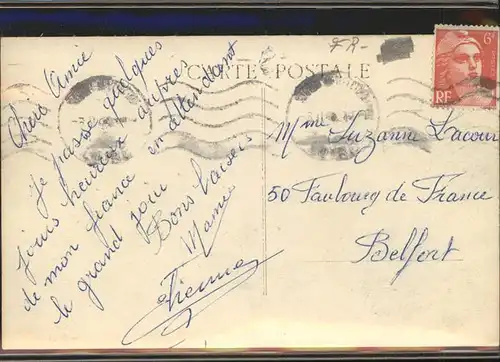 FR-
CARTE POSTALE
6F
RF
Chère Amie
Je passe quelques
jours heureux auprès
de mon fiancé en attendant
le grand jour
Bons baisers
Mamie
Etienne
Mme Suzanne Lacour
50 Faubourg de France
Belfort